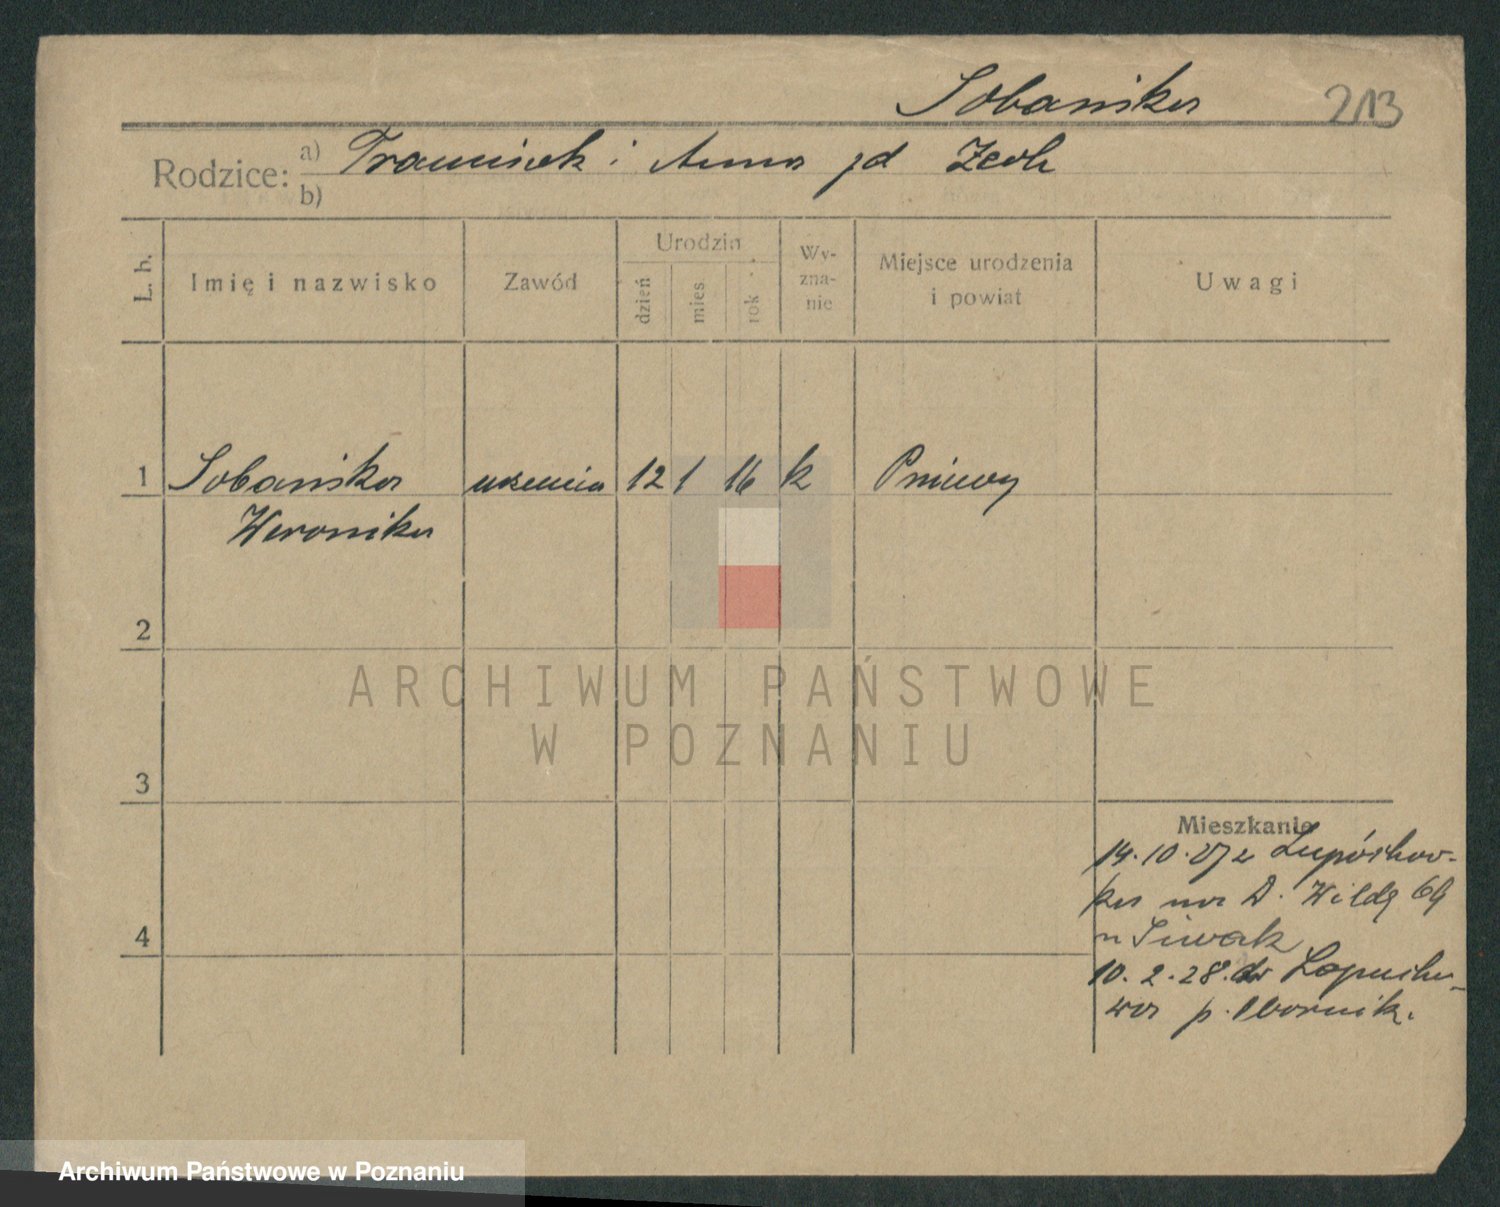 Sobańska 213
Rodzice: a) Franciszek i Anna zd
b)
L. b. Imię i nazwisko Zawód Urodzin dzień mies. rok Wy-zna-nie Miejsce urodzenia i powiat Uwagi
1 Sobańska uczennica 12 1 16 k Pniewy
Weronika
2
ARCHIWUM PAŃSTWOWE
W POZNANIU
3
Mieszkanie
14.10.27 z
na D. Wildę 69
4
u Siwak
10.2.28. do Łopucho-
wa p. Obornik.
Archiwum Państwowe w Poznaniu